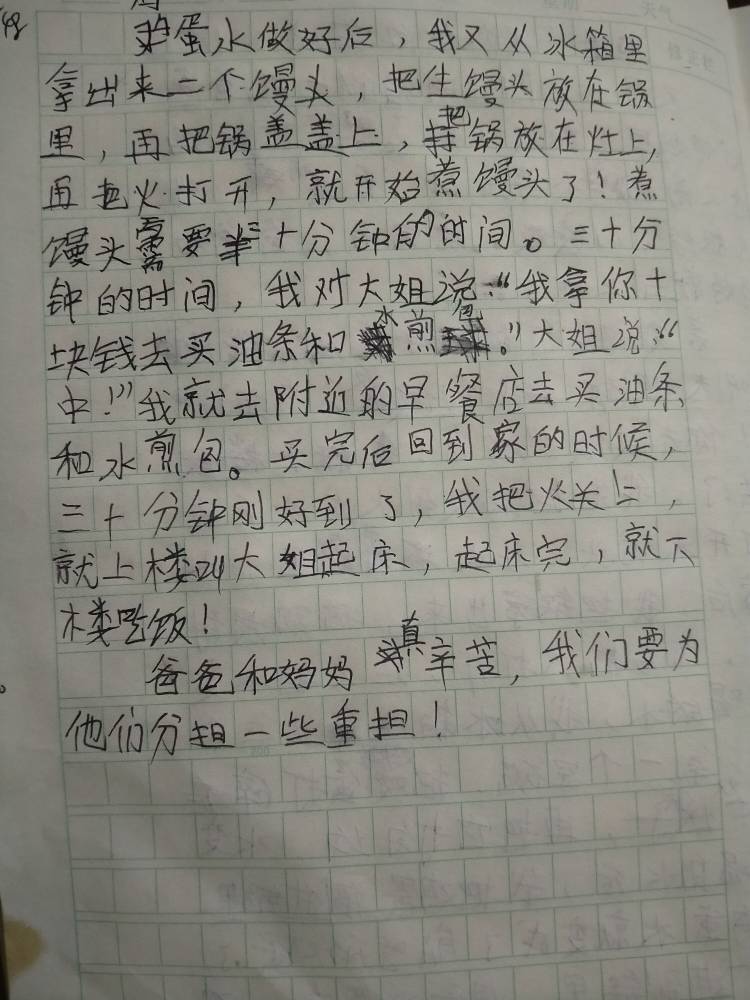 鸡蛋水做好后，我又从冰箱里
拿出来二个馒头，把生馒头放在锅
里，再把锅盖盖上，把锅放在灶上，
再把火打开，就开始煮馒头了！煮
馒头需要三十分钟的时间。三十分
钟的时间，我对大姐说：“我拿你十
块钱去买油条和水煎包。”大姐说：“
中！”我就去附近的早餐店去买油条
和水煎包。买完后回到家的时候，
三十分钟刚好到了，我把火关上，
就上楼叫大姐起床，起床完，就下
楼吃饭！
爸爸和妈妈真辛苦，我们要为
他们分担一些重担！